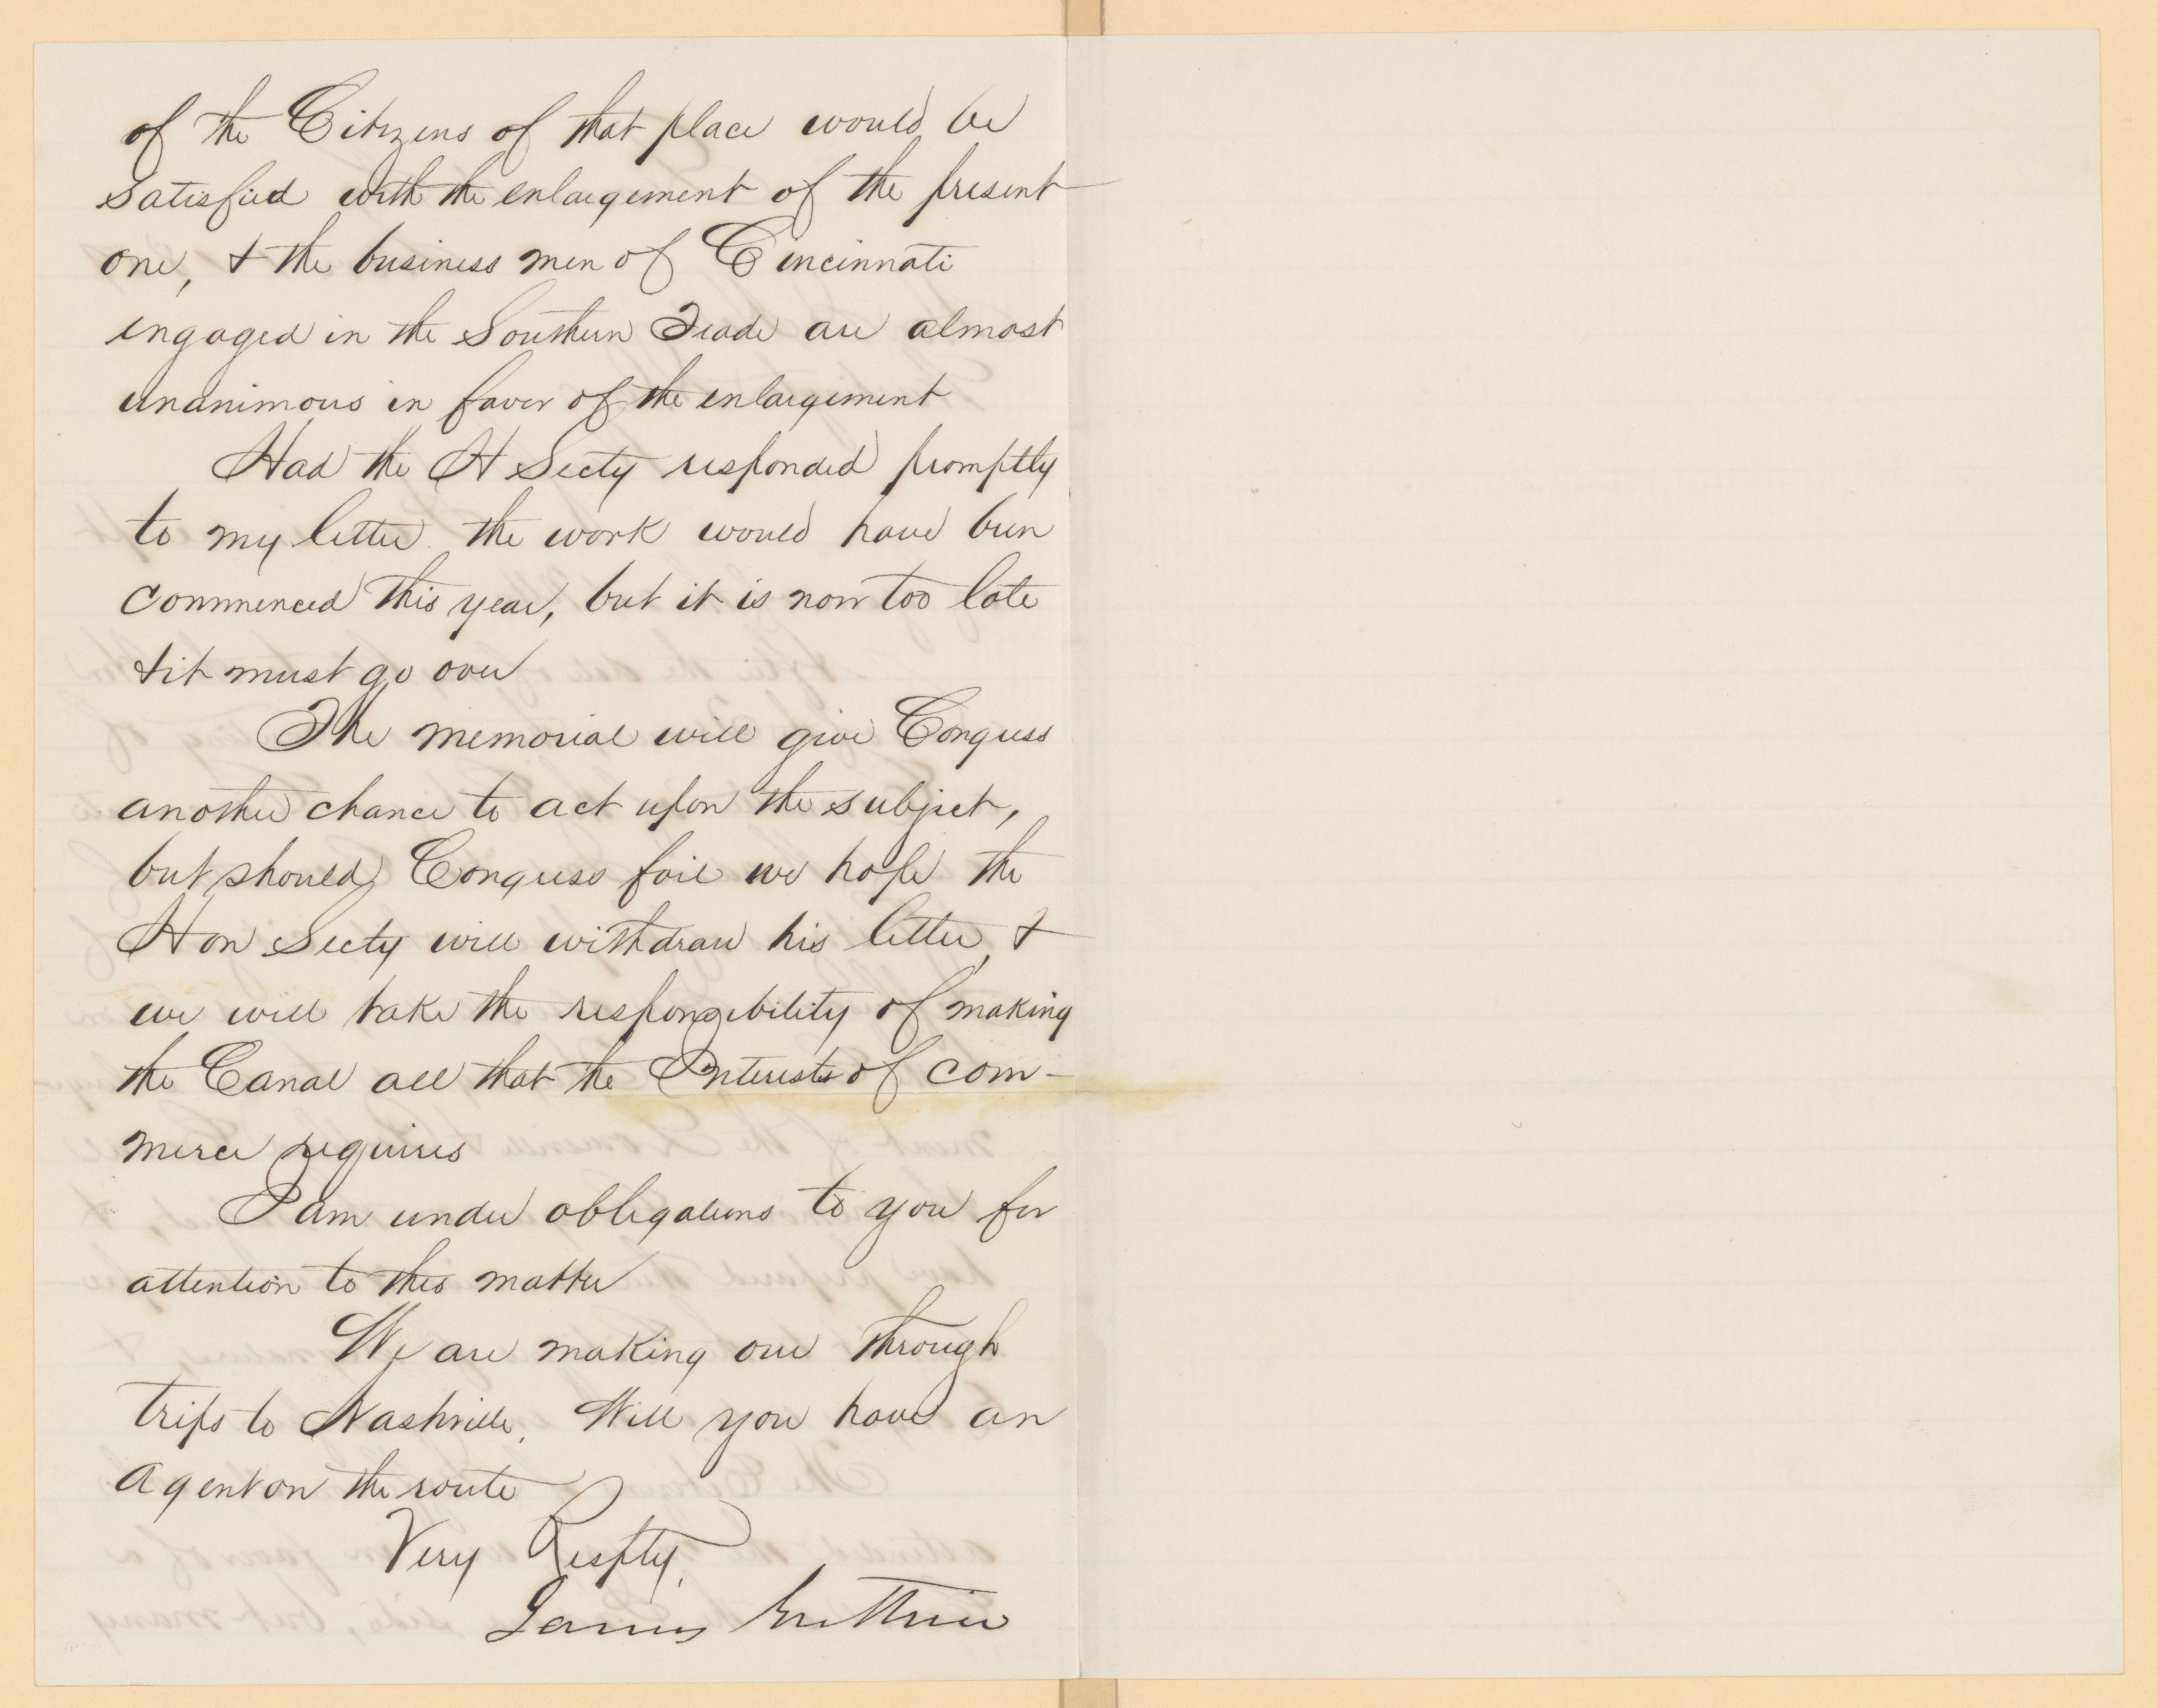 of the Citizens of that place would be
satisfied with the enlargement of the present
one, & the business men of Cincinnati
engaged in the Southern Trade are almost
unanimous in favor of the enlargement
Had the H Secty responded promptly
to my letter the work would have been
commenced this year, but it is now too late
& it must go over
The memorial will give Congress
another chance to act upon the subject,
but should Congress fail we hope the
Hon Secty will withdraw his letter, &
we will take the responsibility of making
the Canal all that the Interests of com-
merce requires
I am under obligations to you for
attention to this matter
We are making our through
trips to Nashville. Will you have an
Agent on the route
Very Respfty.
James Guthrie